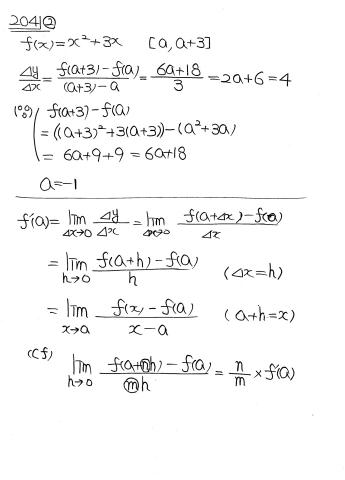 204|②
f(x)=x²+3x [a, a+3]
Δy/Δx = (f(a+3)-f(a))/((a+3)-a) = (6a+18)/3 = 2a+6 = 4
f(a+3)-f(a)
=((a+3)²+3(a+3))-(a²+3a)
= 6a+9+9 = 6a+18
a=-1
f'(a)= lim Δx→0 Δy/Δx = lim Δx→0 (f(a+Δx)-f(a))/Δx
= lim h→0 (f(a+h)-f(a))/h (Δx=h)
= lim x→a (f(x)-f(a))/(x-a) (a+h=x)
(cf) lim h→0 (f(a+ⓝh)-f(a))/(ⓜh) = n/m × f'(a)